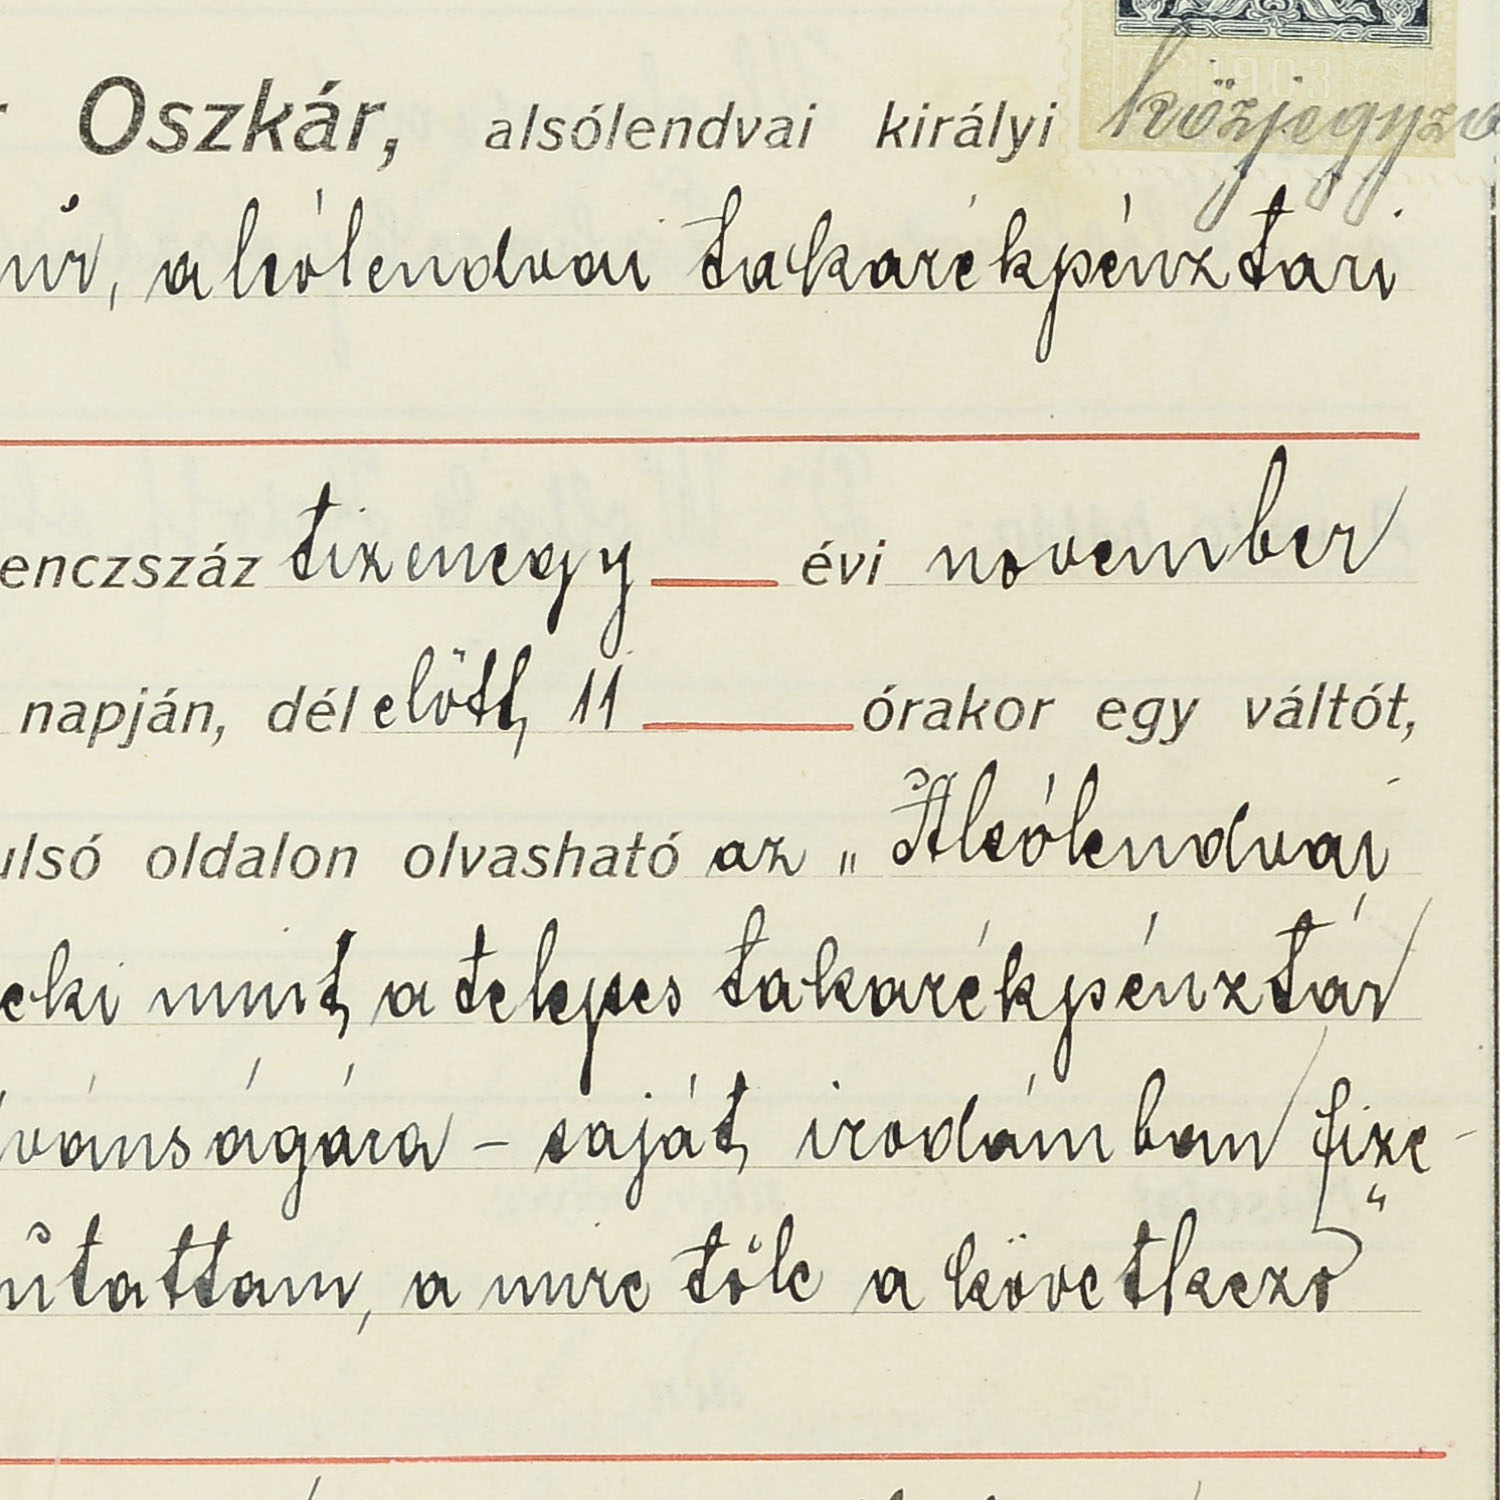 Oszkár, alsólendvai királyi közjegyző
úr, alsólendvai takarékpénztári
enczszáz tizenegy évi november
napján, délelőtt 11 órakor egy váltót,
ulsó oldalon olvasható az „Alsólendvai
eki mint a telepes takarékpénztár
ívánságára – saját irodámban fize-
mutattam, a mire tőle a következő